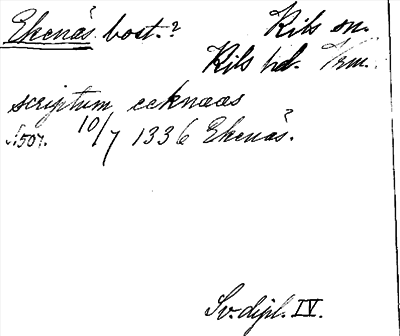 Ekenäs bost.? Kils sn.
Kils hd. Vrm.
scriptum ecknaas
s. 507. 10/7 1336 Ekenäs?
Sv. dipl. IV.